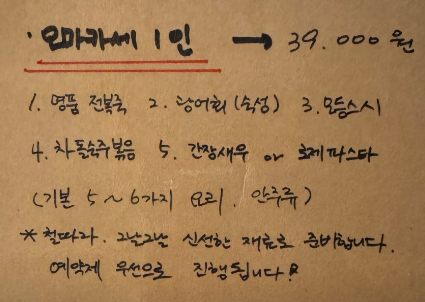 · 오마카세 1인 → 39.000원
1. 명품 전복죽 2. 광어회(숙성) 3. 모듬스시
4. 차돌숙주볶음 5. 간장새우 or 수제파스타
(기본 5~6가지 요리. 안주류)
* 철따라. 그날그날 신선한 재료로 준비합니다.
예약제 우선으로 진행됩니다!